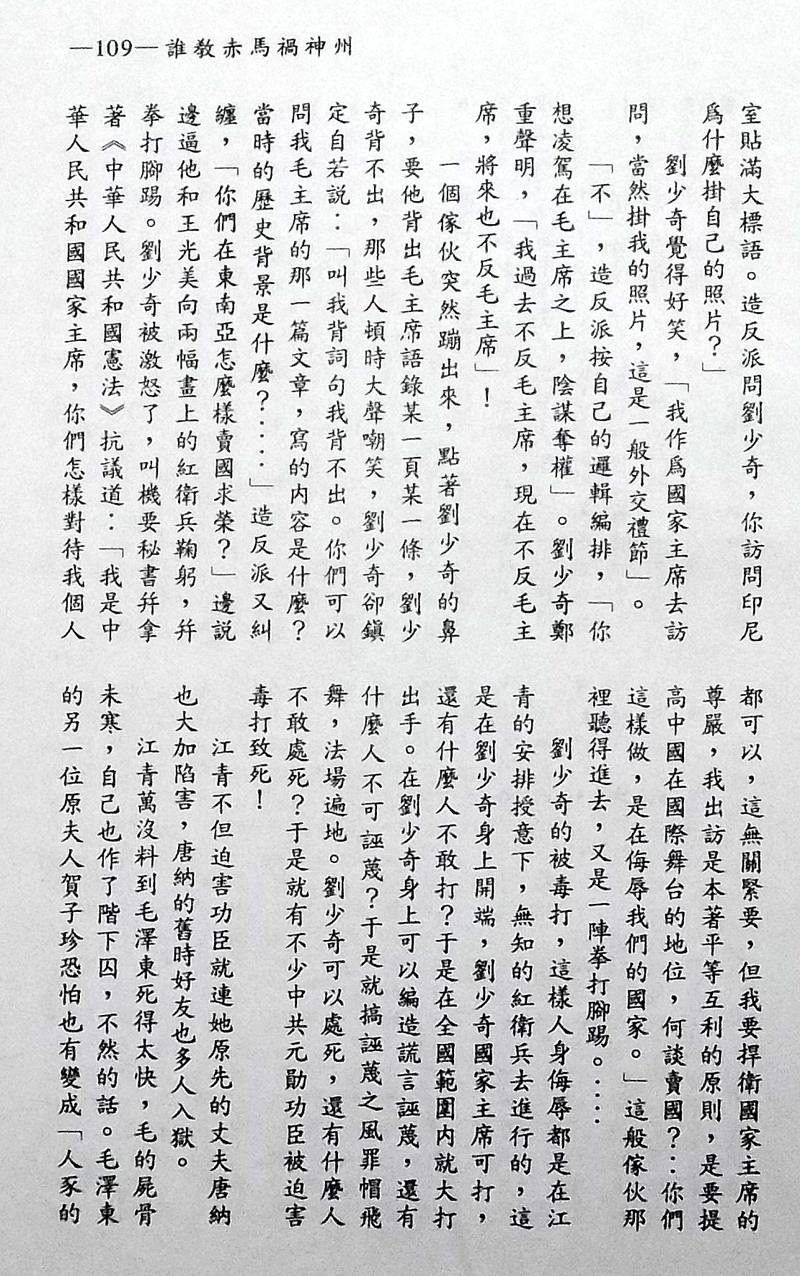 —109—誰教赤馬禍神州
室貼滿大標語。造反派問劉少奇，你訪問印尼
爲什麼掛自己的照片？」
劉少奇覺得好笑，「我作爲國家主席去訪
問，當然掛我的照片，這是一般外交禮節」。
「不」，造反派按自己的邏輯編排，「你
想凌駕在毛主席之上，陰謀奪權」。劉少奇鄭
重聲明，「我過去不反毛主席，現在不反毛主
席，將來也不反毛主席」！
一個傢伙突然蹦出來，點著劉少奇的鼻
子，要他背出毛主席語錄某一頁某一條，劉少
奇背不出，那些人頓時大聲嘲笑，劉少奇卻鎮
定自若説：「叫我背詞句我背不出。你們可以
問我毛主席的那一篇文章，寫的內容是什麼？
當時的歷史背景是什麼？‥‥」造反派又糾
纏，「你們在東南亞怎麼樣賣國求榮？」邊説
邊逼他和王光美向兩幅畫上的紅衛兵鞠躬，幷
拳打腳踢。劉少奇被激怒了，叫機要秘書幷拿
著《中華人民共和國憲法》抗議道：「我是中
華人民共和國國家主席，你們怎樣對待我個人
都可以，這無關緊要，但我要捍衛國家主席的
尊嚴，我出訪是本著平等互利的原則，是要提
高中國在國際舞台的地位，何談賣國？‥你們
這樣做，是在侮辱我們的國家。」這般傢伙那
裡聽得進去，又是一陣拳打腳踢。‥‥
劉少奇的被毒打，這樣人身侮辱都是在江
青的安排授意下，無知的紅衛兵去進行的，這
是在劉少奇身上開端，劉少奇國家主席可打，
還有什麼人不敢打？于是在全國範圍內就大打
出手。在劉少奇身上可以編造謊言誣蔑，還有
什麼人不可誣蔑？于是就搞誣蔑之風罪帽飛
舞，法場遍地。劉少奇可以處死，還有什麼人
不敢處死？于是就有不少中共元勛功臣被迫害
毒打致死！
江青不但迫害功臣就連她原先的丈夫唐納
也大加陷害，唐納的舊時好友也多人入獄。
江青萬沒料到毛澤東死得太快，毛的屍骨
未寒，自己也作了階下囚，不然的話。毛澤東
的另一位原夫人賀子珍恐怕也有變成「人豕的